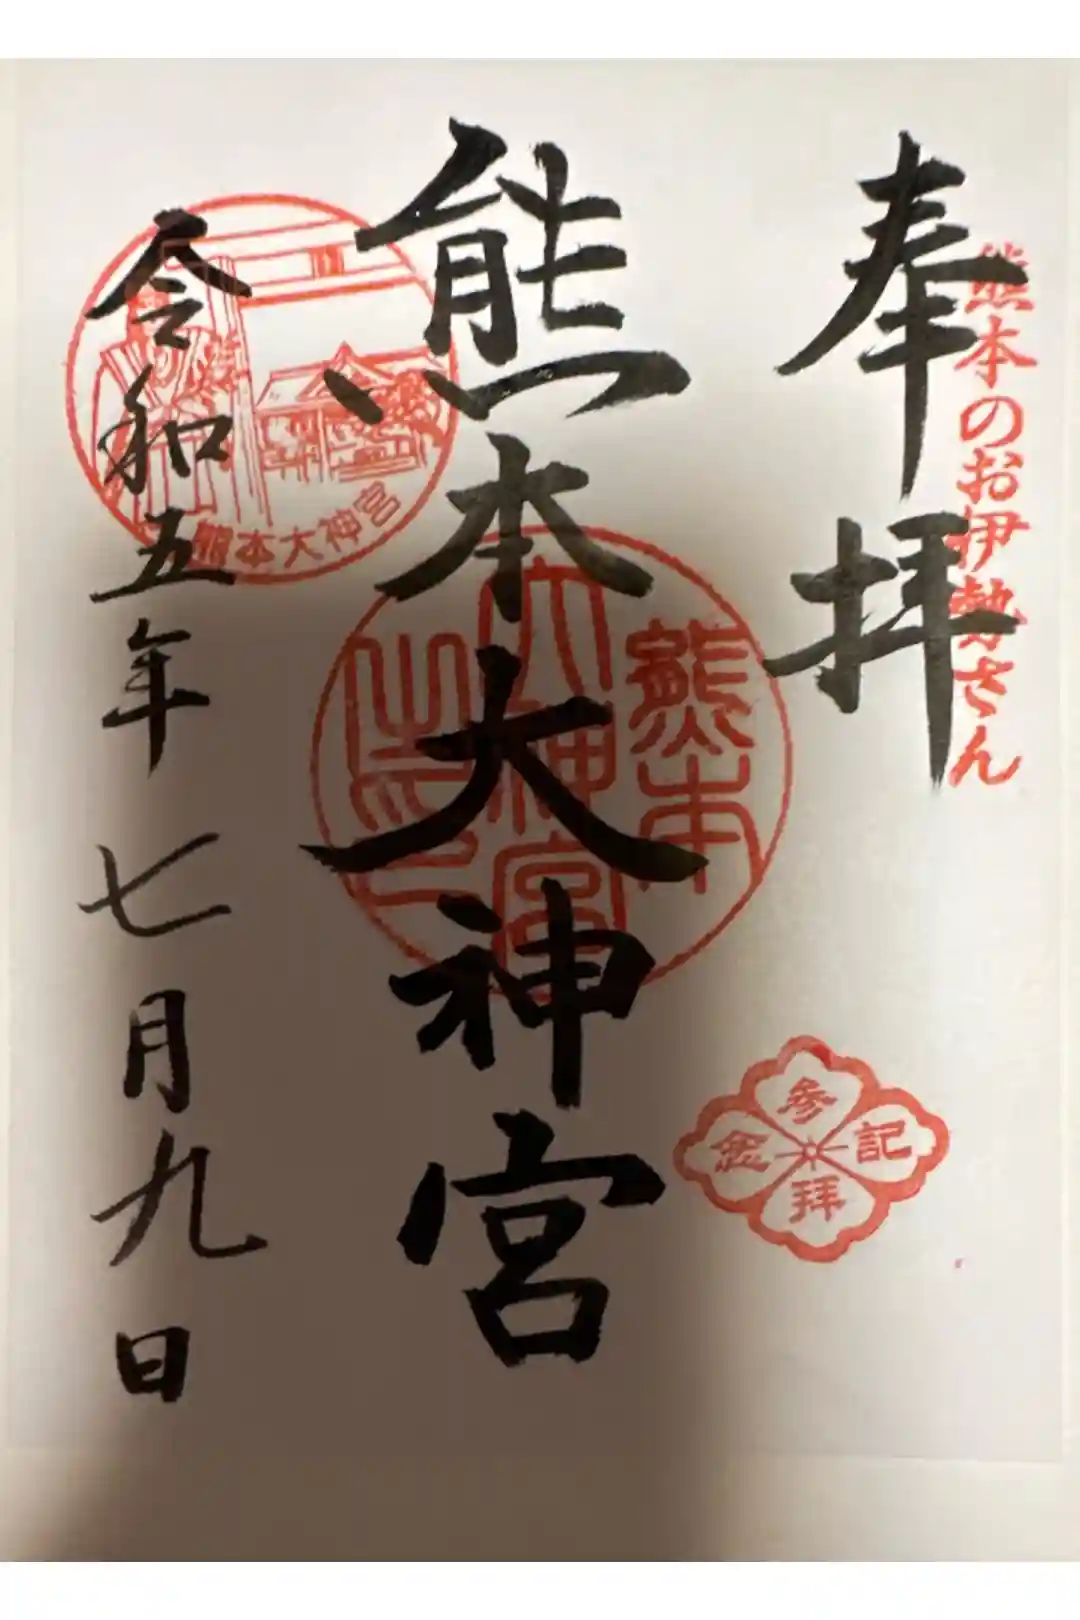 奉拝
熊本のお伊勢さん
熊本大神宮
熊本
大神宮
之印
令和五年 七月九日
熊本大神宮
参拝
記念